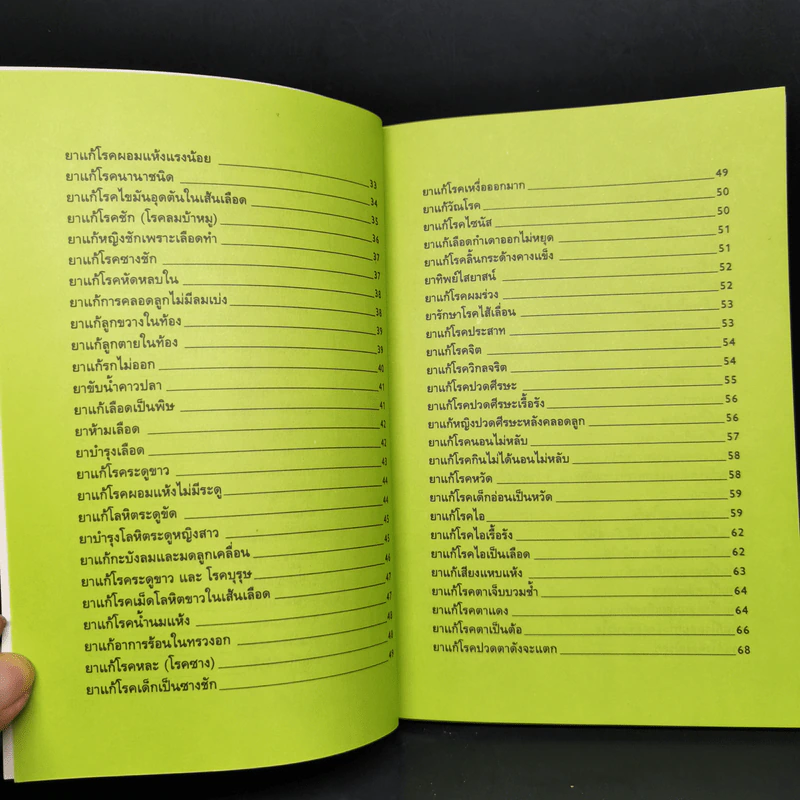 ยาแก้โรคผอมแห้งแรงน้อย 33
ยาแก้โรคนานาชนิด 34
ยาแก้โรคไขมันอุดตันในเส้นเลือด 35
ยาแก้โรคชัก (โรคลมบ้าหมู) 36
ยาแก้หญิงชักเพราะเลือดทำ 37
ยาแก้โรคซางชัก 37
ยาแก้โรคหัดหลบใน 38
ยาแก้การคลอดลูกไม่มีลมเบ่ง 38
ยาแก้ลูกขวางในท้อง 39
ยาแก้ลูกตายในท้อง 39
ยาแก้รกไม่ออก 40
ยาขับน้ำคาวปลา 41
ยาแก้เลือดเป็นพิษ 41
ยาห้ามเลือด 42
ยาบำรุงเลือด 42
ยาแก้โรคระดูขาว 43
ยาแก้โรคผอมแห้งไม่มีระดู 44
ยาแก้โลหิตระดูขัด 44
ยาบำรุงโลหิตระดูหญิงสาว 45
ยาแก้กะบังลมและมดลูกเคลื่อน 45
ยาแก้โรคระดูขาว และ โรคบุรุษ 46
ยาแก้โรคเม็ดโลหิตขาวในเส้นเลือด 47
ยาแก้โรคน้ำนมแห้ง 47
ยาแก้อาการร้อนในทรวงอก 48
ยาแก้โรคหละ (โรคซาง) 48
ยาแก้โรคเด็กเป็นซางชัก 49
ยาแก้โรคเหงื่อออกมาก 49
ยาแก้วัณโรค 50
ยาแก้โรคไซนัส 50
ยาแก้เลือดกำเดาออกไม่หยุด 51
ยาแก้โรคลิ้นกระด้างคางแข็ง 51
ยาทิพย์ไสยาสน์ 52
ยาแก้โรคผมร่วง 52
ยารักษาโรคไส้เลื่อน 53
ยาแก้โรคประสาท 53
ยาแก้โรคจิต 54
ยาแก้โรควิกลจริต 54
ยาแก้โรคปวดศีรษะ 55
ยาแก้โรคปวดศีรษะเรื้อรัง 56
ยาแก้หญิงปวดศีรษะหลังคลอดลูก 56
ยาแก้โรคนอนไม่หลับ 57
ยาแก้โรคกินไม่ได้นอนไม่หลับ 58
ยาแก้โรคหวัด 58
ยาแก้โรคเด็กอ่อนเป็นหวัด 59
ยาแก้โรคไอ 59
ยาแก้โรคไอเรื้อรัง 62
ยาแก้โรคไอเป็นเลือด 62
ยาแก้เสียงแหบแห้ง 63
ยาแก้โรคตาเจ็บบวมช้ำ 64
ยาแก้โรคตาแดง 64
ยาแก้โรคตาเป็นต้อ 66
ยาแก้โรคปวดตาดังจะแตก 68